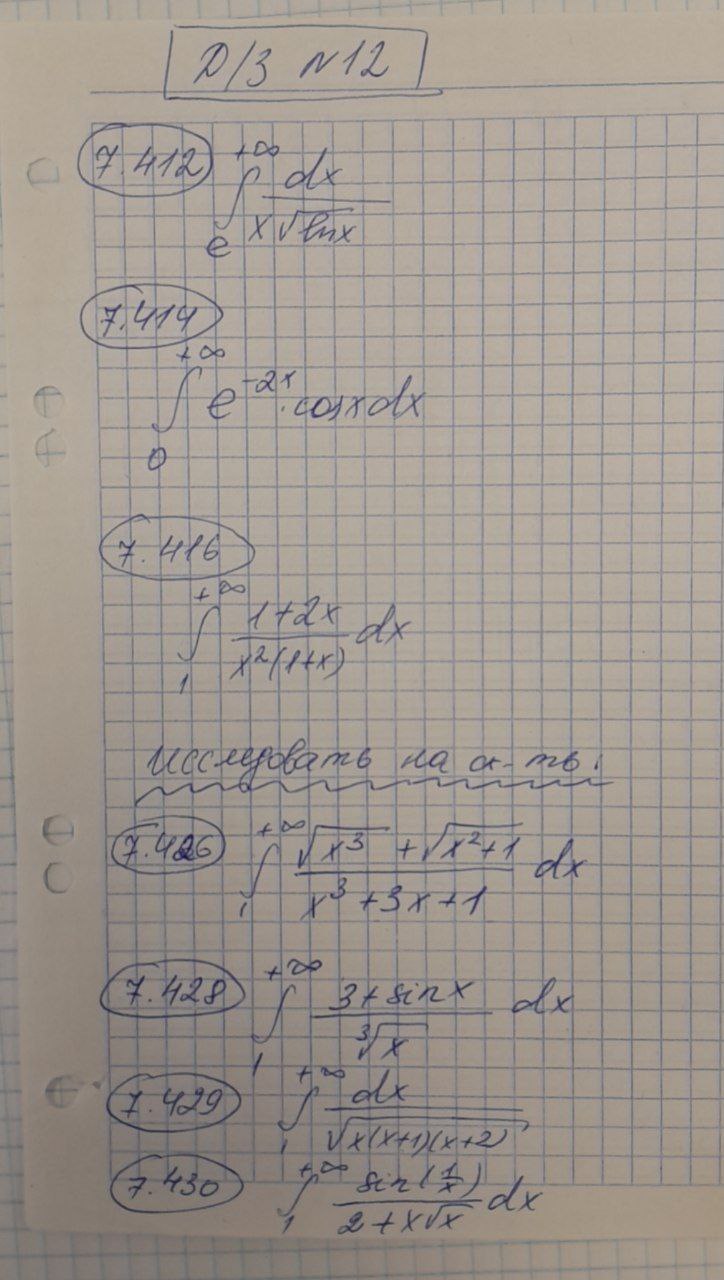 Д/З №12
7.412 ∫_e^{+∞} dx / (x√(ln x))
7.414
∫_0^{+∞} e^{-2x}·cosx dx
7.416
∫_1^{+∞} (1+2x) / (x²(1+x)) dx
Исследовать на сх-ть:
7.426 ∫_1^{+∞} (√(x³) + √(x²+1)) / (x³+3x+1) dx
7.428 ∫_1^{+∞} (3+sinx) / ∛x dx
7.429 ∫_1^{+∞} dx / √(x(x+1)(x+2))
7.430 ∫_1^{+∞} sin(1/x) / (2+x√x) dx